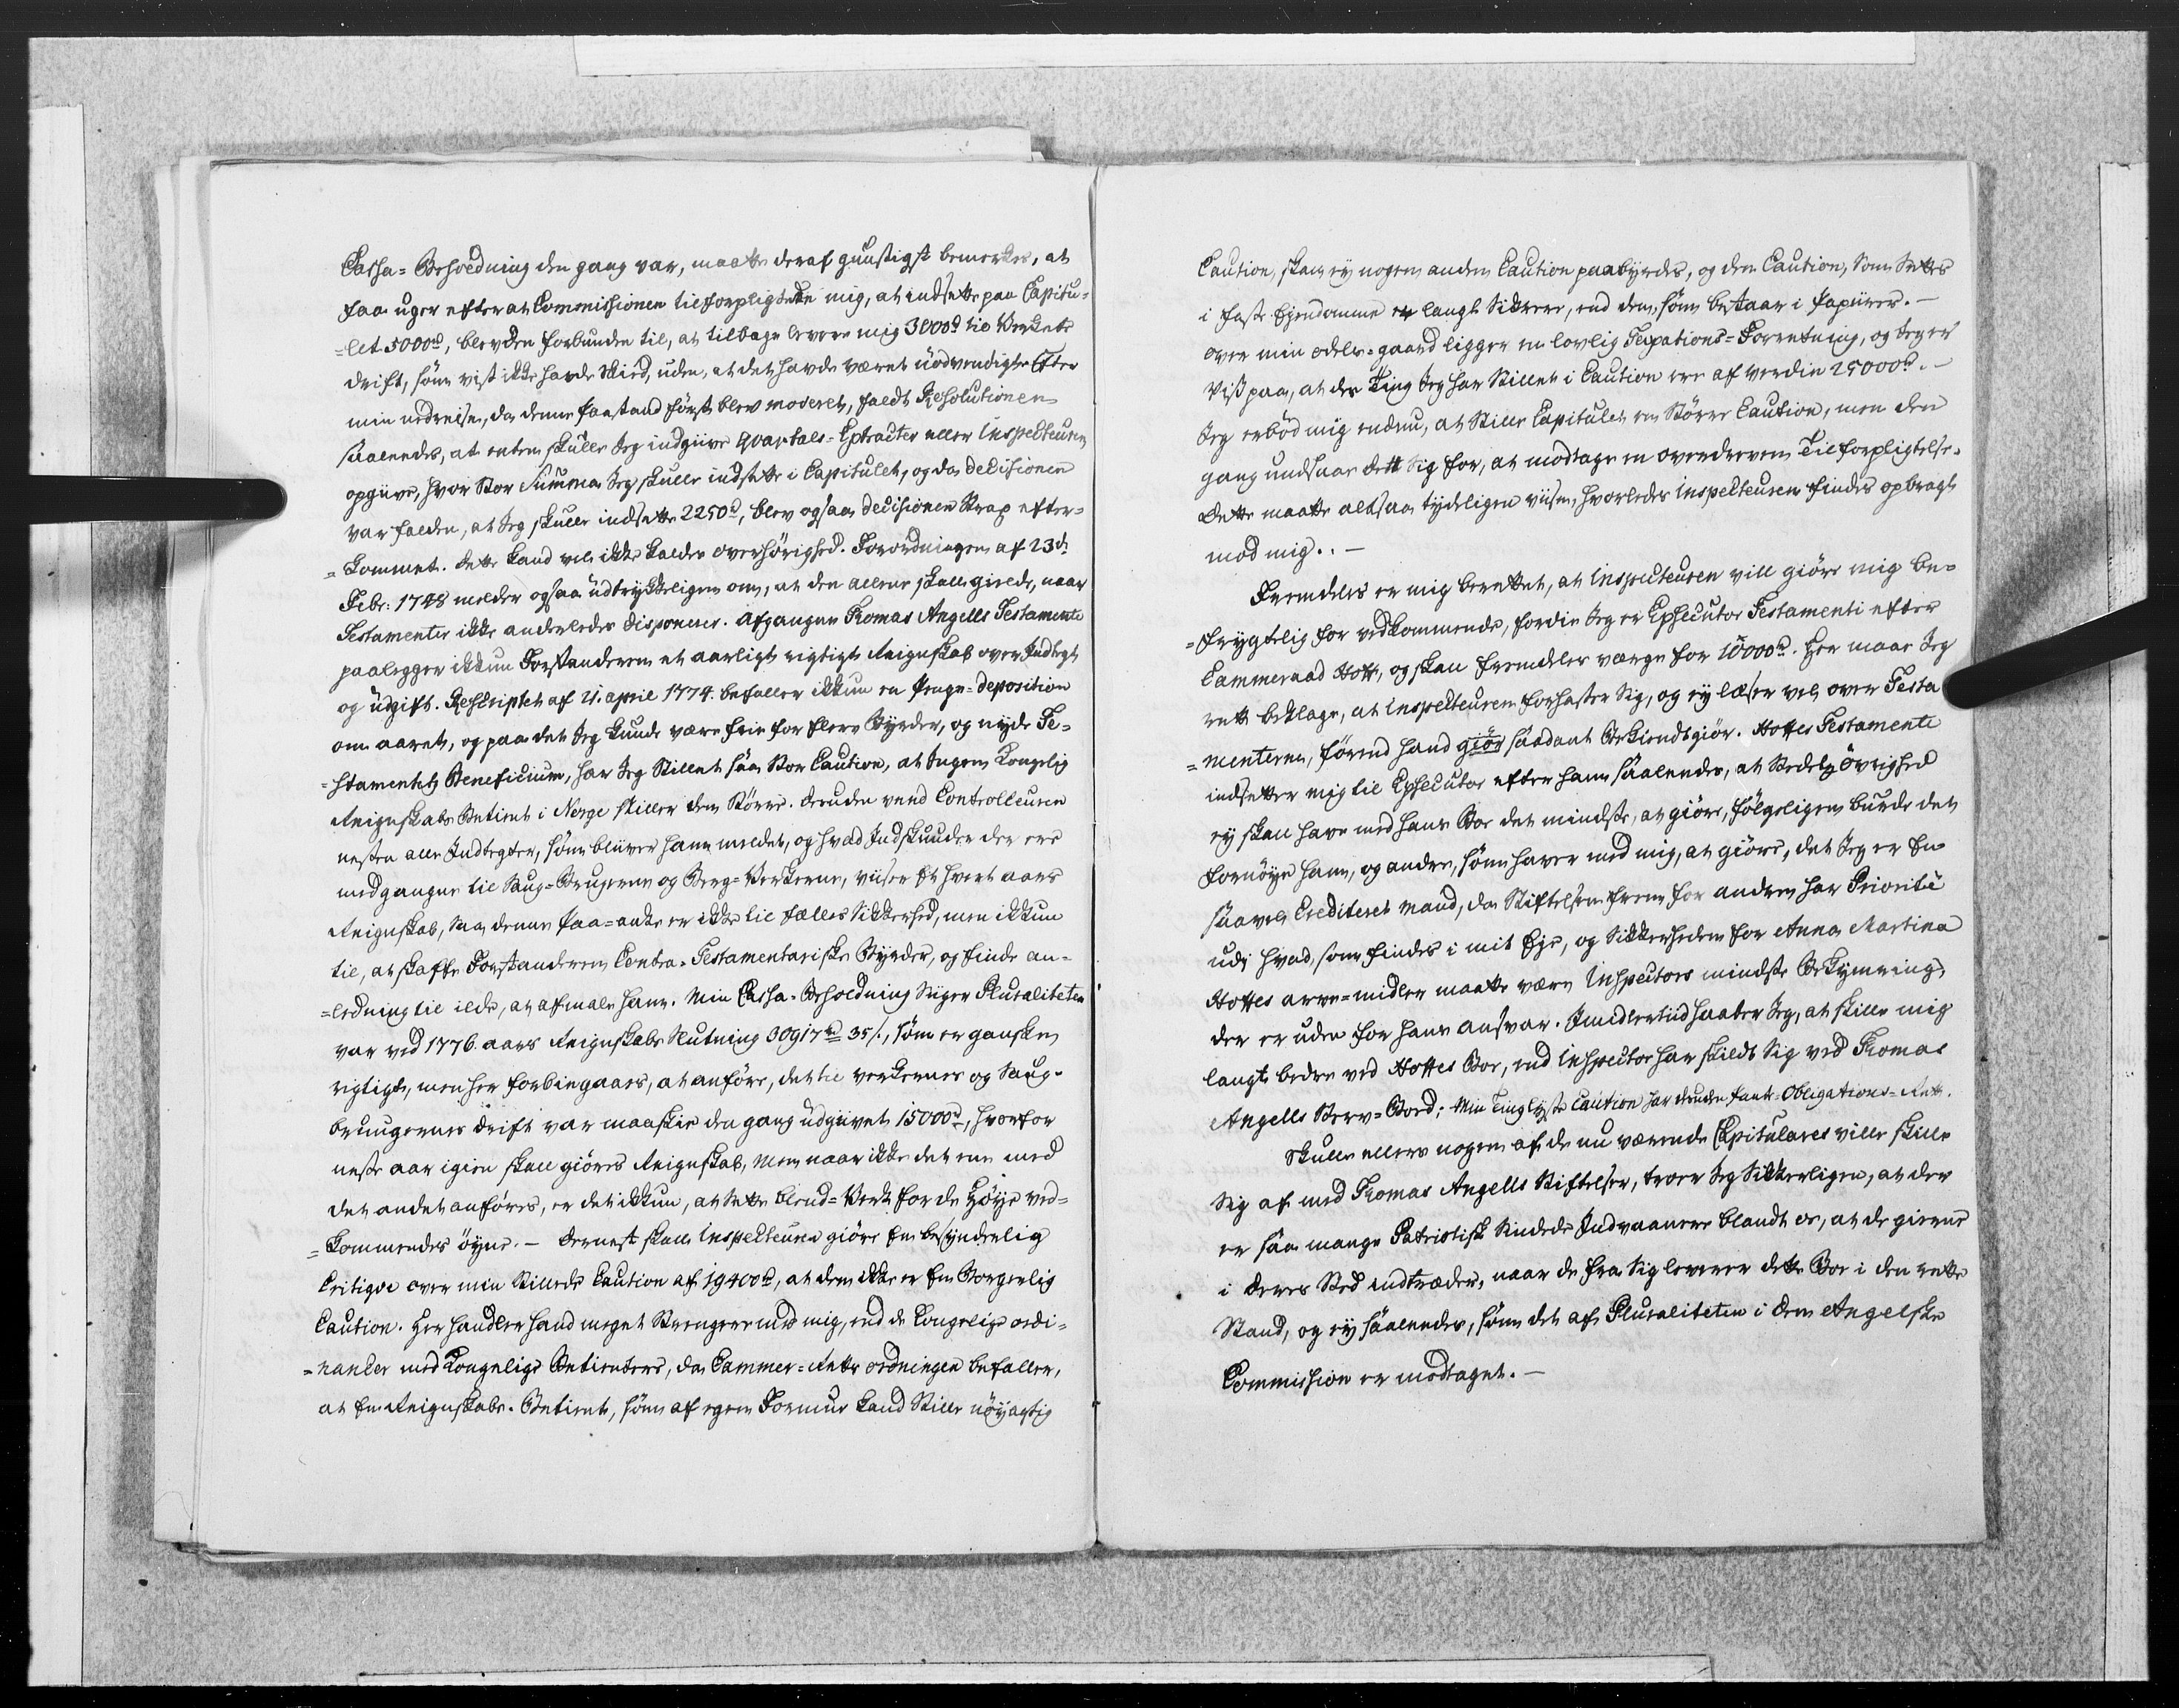 Cassa=Beholdning den gang var, maatte deraf gunstigst bemerkes, at
faa uger efter at Commissionen tilforpligtede mig, at indsætte paa Capitu=
=let 5000rd, blev den forbunden til, at tilbage levere mig 3000rd til Verkets
drift, som vist ikke havde skied, uden, at det havde været nødvendigt. Efter
min nedreise, da denne paastand først blev moveret, faldt Resolutionen
saaledes, at enten skulle Jeg indgiive Qvartals=Extracter eller Inspecteuren
opgiive, hvor stor Summa Jeg skulle indsætte i Capitulet, og da decisionen
var falden, at Jeg skulle indsætte 2250rd, blev ogsaa decisionen strax efter=
=kommet. Dette kand vel ikke kaldes overhørighed. Forordningen af 23de
Febr: 1748 melder ogsaa udtrykkeligen om, at den allene skall gielde, naar
Testamenter ikke anderledes disponerer. Afgangne Thomas Angells Testamente
paalegger ikkun Forstanderen et aarligt rigtigt Reignskab over Indtegt
og udgift. Rescriptet af 21. april 1774. befaller ikkun en Penge=deposition
om aaret, og paa det Jeg kunde være frie for flere Byrder, og nyde Te=
=stamentets Beneficium, har Jeg stillet saa stor Caution, at Ingen Kongelig
Reignskabs Betient i Norge stiller den større. desuden veed Controlleuren
nesten alle Indtegter, som bliiver ham meldet, og hvad Indskuder der ere
medgangne til Saug=Brugerne og Berg=Verkerne, viiser Et hvert aars
Reignskab, saa denne Paa=anke er ikke til fælles Sikkerhed, men ikkun
til, at skaffe Forstanderen Contra=Testamentariske Byrder, og finde an=
=ledning til ilde, at afmale ham. Min Cassa=Beholdning siiger Pluraliteten
var ved 1776. aars Reignskabs Slutning 30917rd 35s., som er ganske
rigtigt, men her forbiegaaes, at anføre, det til verkernes og Saug=
brugernes drift var maaskie den gang udgiivet 15000rd, hvorfor
neste aar igien skall giøres Reignskab, Men naar ikke det ene med
det andet anføres, er det ikkun, at sætte blend=Verk for de Høye ved=
=kommendes øyne. — Dernest skall Inspecteuren giøre En besynderlig
Critiqve over min stillede Caution af 19400rd, at den ikke er En Borgerlig
Caution. Her handler hand meget strengere med mig, end de Kongelige ordi=
=nancer med Kongelige Betientere, da Cammer=Rette ordningen befaller,
at En Reignskabs=Betient, som af egen Formue kand stille nøyagtig
Caution, skall ey nogen anden Caution paabyrdes, og den Caution, som sættes
i faste Eyendomme er langt sikkrere, end den, som bestaar i Papiirer. —
over min odels=gaard ligger en lovlig Taxations=Forretning, og Jeg er
viss paa, at de Ting Jeg har stillet i Caution ere af verdie 25000rd. —
Jeg erbød mig endnu, at stille Capitulet en større Caution, men den
gang undsaae dett sig for, at modtage en overdreven Tilforpligtelse.
Dette maatte altsaa tydeligen viise, hvorledes Inspecteuren findes opbragt
mod mig. . —
Fremdeles er mig berettet, at Inspecteuren vill giøre mig be=
=frygtelig for vedkommende, fordie Jeg er Executor Testamenti efter
Cammeraad Hoff, og skall fremdeles værge for 10000rd. Her maae Jeg
rett beklage, at Inspecteuren forhaster sig, og ey læser vel over Testa
=menterne, førend hand giør saadant Bekiendtgiør. Hoffes Testamente
indsetter mig til Executor efter ham saaledes, at stedets øvrighed
ey skall have med hans Boe det mindste, at giøre, følgeligen burde det
fornøye ham, og andre, som haver med mig, at giøre, det Jeg er En
saavel Crediteret Mand, da Stiftelsen frem for andre har Prioritè
udi hvad, som findes i mit Eje, og Sikkerheden for Anna Martina
Hoffes arve=midler maatte være Inspectors mindste Bekymring,
der er uden for hans ansvar. Imidlertiid haaber Jeg, at skille mig
langt bedre ved Hoffes Boe, end Inspector har skildt sig ved Thomas
Angells Sterv=Boed; Min Tinglyste Caution har desuden Pant=Obligations=Rett.
Skulle ellers nogen af de nu værende Capitulares ville skille
Sig af med Thomas Angells Stiftelser, troer Jeg sikkerligen, at der
er saa mange Patriotisk sindede Indvaanere blandt os, at de gierne
i deres Sted indtræder, naar de fra sig leverer dette Boe i den rette
Stand, og ey saaledes, som det af Pluraliteten i den Angelske
Commission er modtaget. —